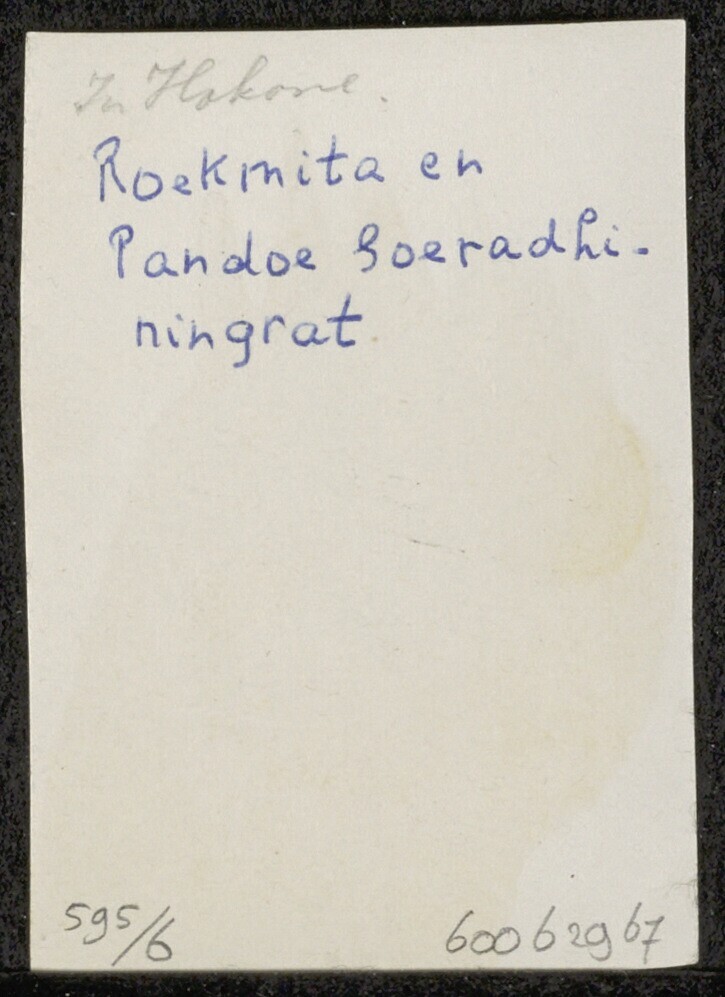 In Hakone.
Roekmita en
Pandoe Soeradhi-
ningrat
595/6
60062967